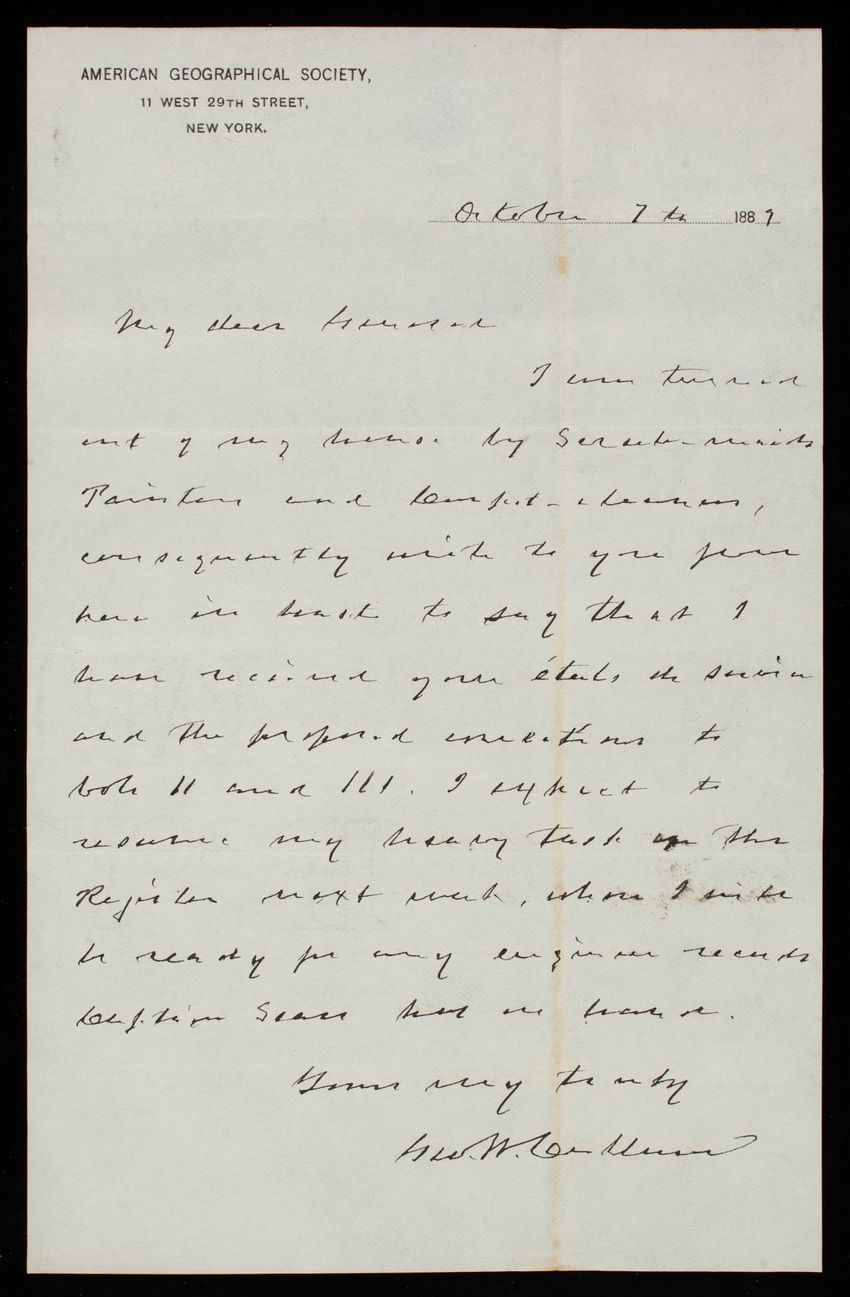 AMERICAN GEOGRAPHICAL SOCIETY,
11 WEST 29TH STREET,
NEW YORK.
October 7th 1889
My dear General
I am turned
out of my house by Scrub-maids
Painters and Carpet-cleaners,
consequently write to you from
here in haste to say that I
have received your états de service
and the proposed corrections to
both II and III. I expect to
resume my heavy task on the
Register next week, when I will
be ready for any engineer records
Captain has on hand.
Yours very truly
Geo. W. Cullum